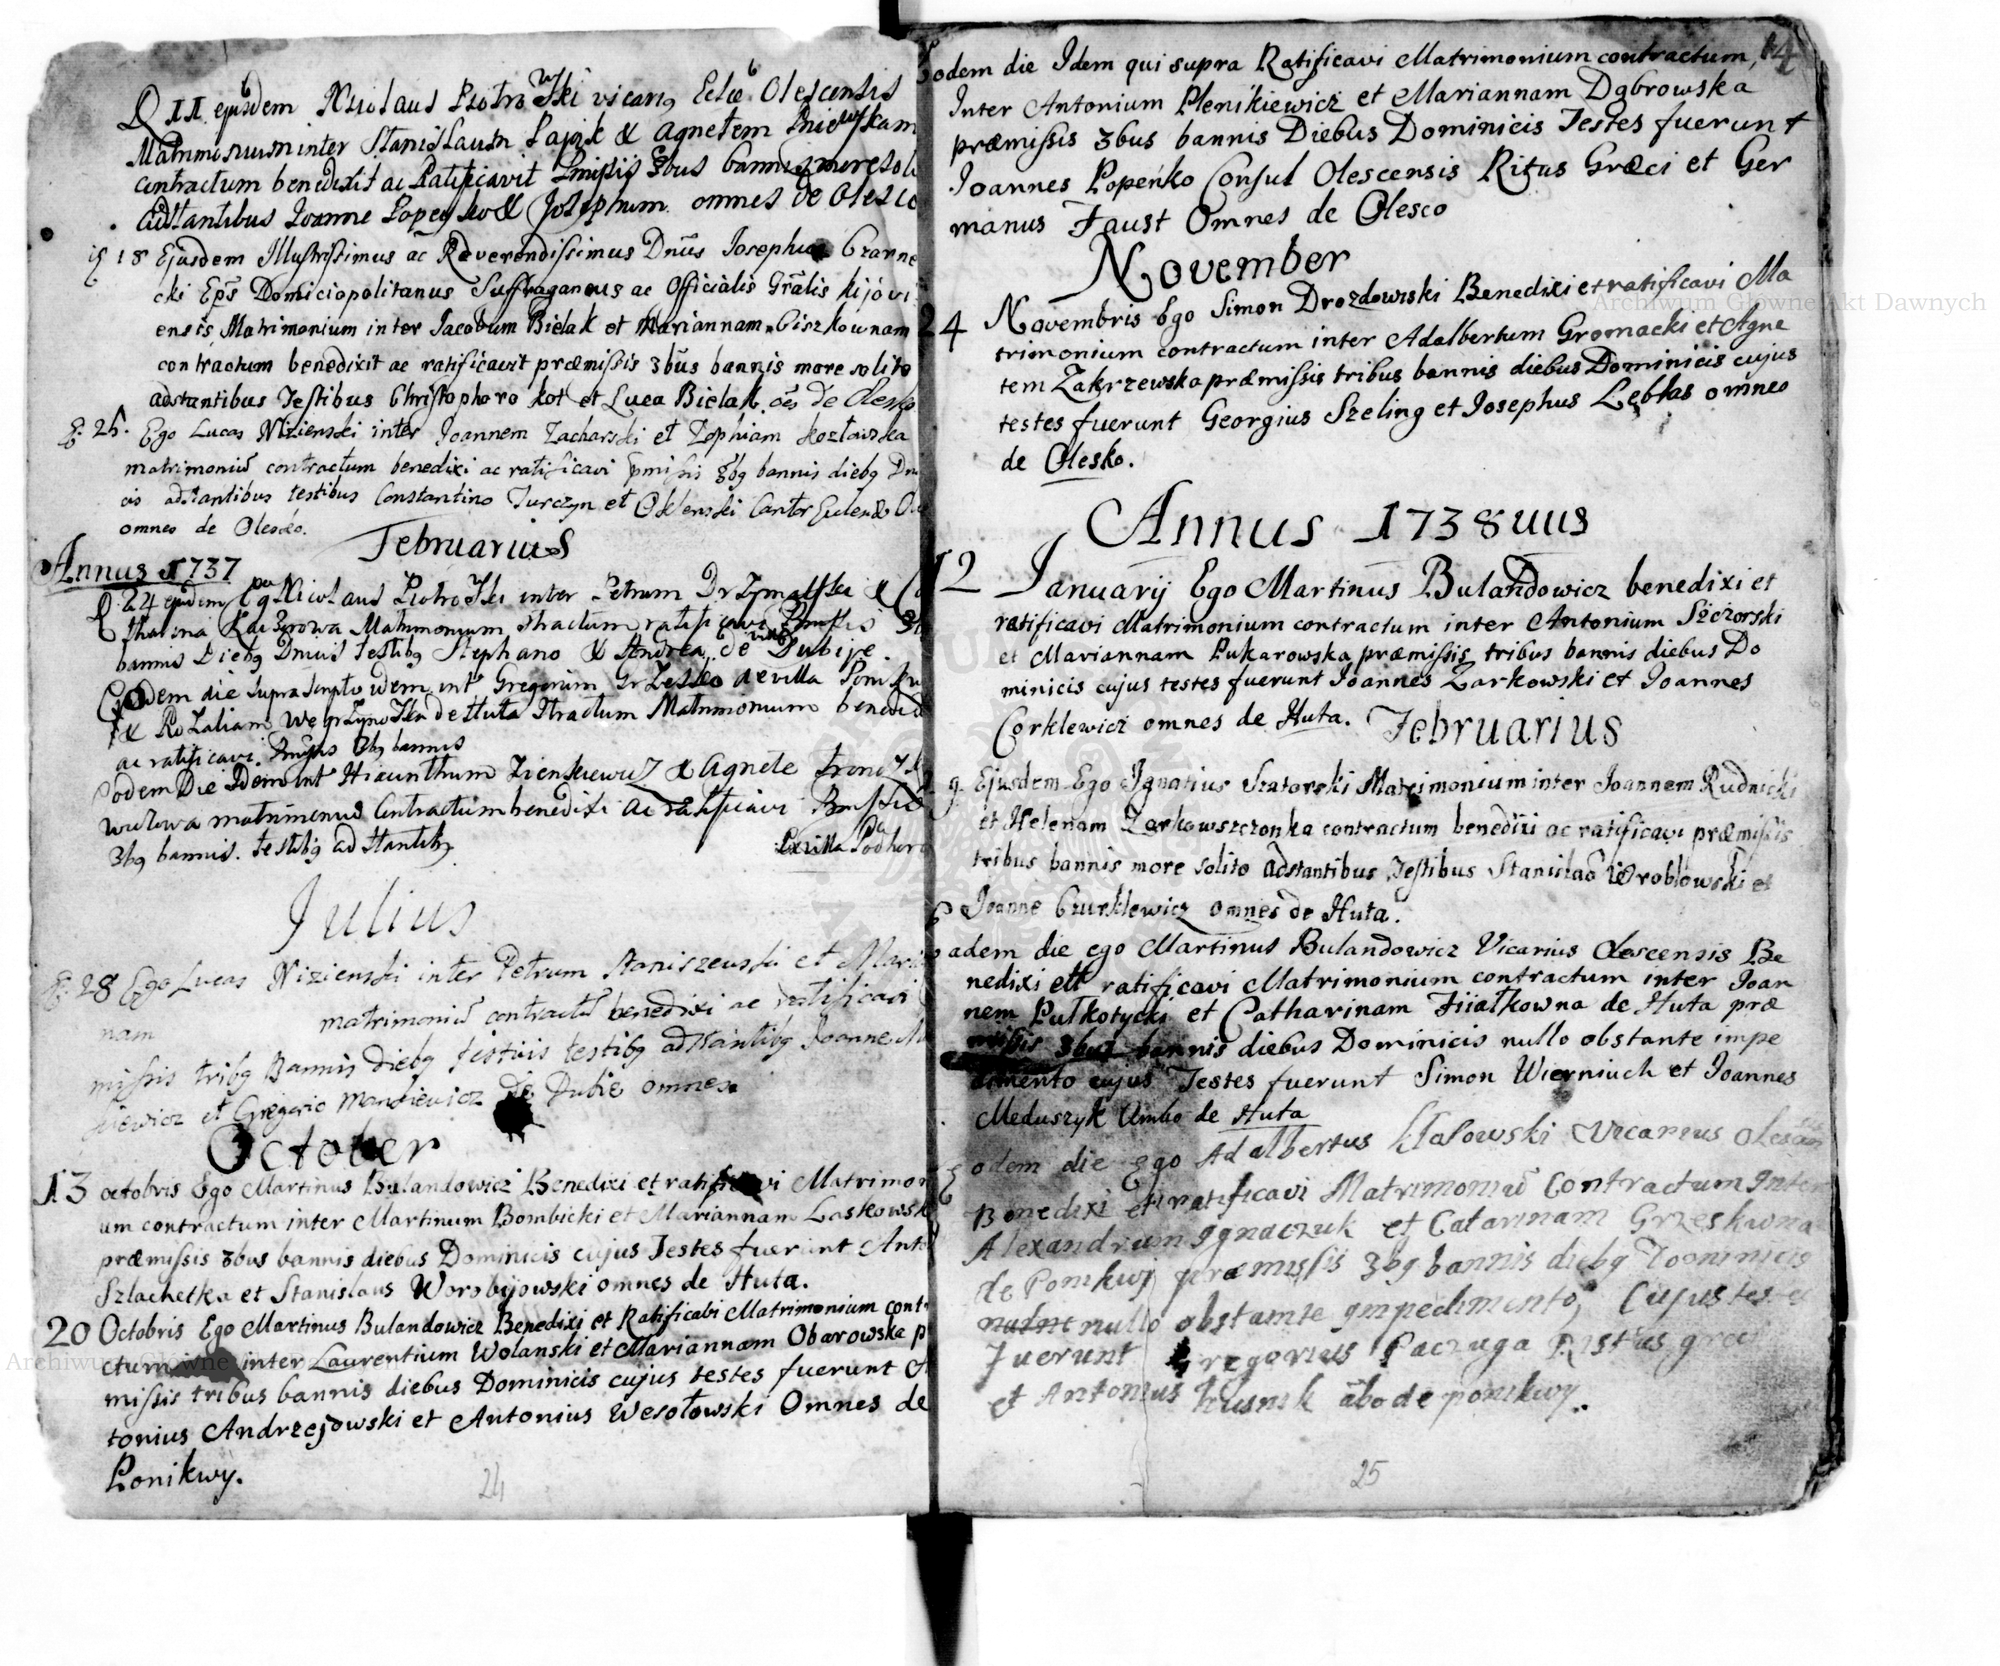 D 11 ejusdem Nicolaus Piotrowski vicariꝯ Eclæ Olescensis
Matrimonium inter Stanislaum Pajzik & Agnetem
contractum benedixit ac Ratificavit Pmissis 3bus bannis more soli
adstantibus Joanne Popeyko & Josephum omnes de Olesco
18 Ejusdem Illustrissimus ac Reverendissimus Dnus Josephus Czarne
cki Epus Domiciopolitanus Suffraganeus ac Officialis Gralis kijovi
ensis Matrimonium inter Jacobum Bielak et Mariannam Ciszkownam
contractum benedixit ac ratificavit præmissis 3bus bannis more solito
adstantibus Testibus Christophoro Kot et Luca Bielak oes de Olesko
Ego Lucas Nizienski inter Joannem Zacharski et Zophiam Kozłowska
matrimoniũ contractum benedixi ac ratificavi pmissis 3bꝯ bannis diebꝯ Dni
cis adstantibus testibus Constantino Turczyn et Oklenski Cantor
omnes de Olesko.
Februarius
Annus 1737
24 ejusdem Ego Nicolaus Piotrowski inter Petrum &
tharina Matrimonium ratificavi Pmissis
bannis Diebꝯ Dnicis Testibꝯ Stephano & Andrea de Dubije.
Eodem die supra scripto idem int Gregorium de villa Poni
& Rozaliam de Huta Matrimonium benedi
ac ratificavi. Pmissis 3bꝯ bannis
odem Die Idem Int Hiacinthum Zienkiewicz & Agnete
matrimoniũ Contractum benedixi ac ratificavi Pmissis
3bꝯ bannis. testibꝯ adstantibꝯ Exvilla Podhor
Julius
28 Ego Lucas Nizienski inter Petrum Staniszewski et Mari
nam matrimoniũ contractũ benedixi ac ratificavi
missis tribꝯ Bannis diebꝯ festivis testibꝯ adstantibꝯ Joanne
kiewicz et Gregorio Mankiewicz de Dubie omnes
October
13 octobris Ego Martinus Bulandowicz Benedixi et ratificavi Matrimoni
um contractum inter Martinum Bombicki et Mariannam Laskowsk
præmissis 3bus bannis diebus Dominicis cujus Testes fuerunt Anto
Szlachetka et Stanislaus Worobijowski omnes de Huta.
20 Octobris Ego Martinus Bulandowicz Benedixi et Ratificabi Matrimonium contr
ctum inter Laurentium Wolanski et Mariannam Obarowska p
missis tribus bannis diebus Dominicis cujus testes fuerunt A
tonius Andrzejowski et Antonius Wesołowski Omnes de
Ponikwy.
24
14
Eodem die Idem qui supra Ratificavi Matrimonium contractum,
Inter Antonium Plenikiewicz et Mariannam Dąbrowska
præmissis 3bus bannis Diebus Dominicis Testes fuerunt
Joannes Popeńko Consul Olescensis Ritus Græci et Ger
manus Faust Omnes de Olesco
November
24 Novembris Ego Simon Drozdowski Benedixi et ratificavi Ma
trimonium contractum inter Adalbertum Gromacki et Agne
tem Zakrzewska præmissis tribus bannis diebus Dominicis cujus
testes fuerunt Georgius Szeling et Josephus Lebłas omnes
de Olesko.
Annus 1738uus
12 Januarij Ego Martinus Bulandowicz benedixi et
ratificavi Matrimonium contractum inter Antonium Szczorski
et Mariannam Pukarowska præmissis tribus bannis diebus Do
minicis cujus testes fuerunt Joannes Zarkowski et Joannes
Corklewicz omnes de Huta. Februarius
9 Ejusdem Ego Ignatius Szatorski Matrimonium inter Joannem Rudnicki
et Helenam Zarkowszczonka contractum benedixi ac ratificavi præmissis
tribus bannis more solito adstantibus Testibus Stanislao Wroblowski et
Joanne Czurklewicz omnes de Huta.
Eadem die ego Martinus Bulandowicz Vicarius Olescensis Be
nedixi ett ratificavi Matrimonium contractum inter Joan
nem Pułkotycki et Catharinam Fiiałkowna de Huta præ
missis 3bus bannis diebus Dominicis nullo obstante impe
dimento cujus Testes fuerunt Simon Wierniuch et Joannes
Meduszyk Ambo de Huta
Eodem die ego Adalbertus Kłasowski Vicarius olescen
Benedixi et ratificavi Matrimoniũ Contractum Inter
Alexandrum Ignaczuk et Catarinam Grzeskowna
de Ponikwy præmissis 3bꝯ bannis diebꝯ Dominicis
nullo obstante Impedimento, Cujus testes
Fuerunt Gregorius Paczuga Ristus græci
et Antonius Kusnik abo de ponikwy.
25
Archiwum Główne Akt Dawnych
Archiwum Główne